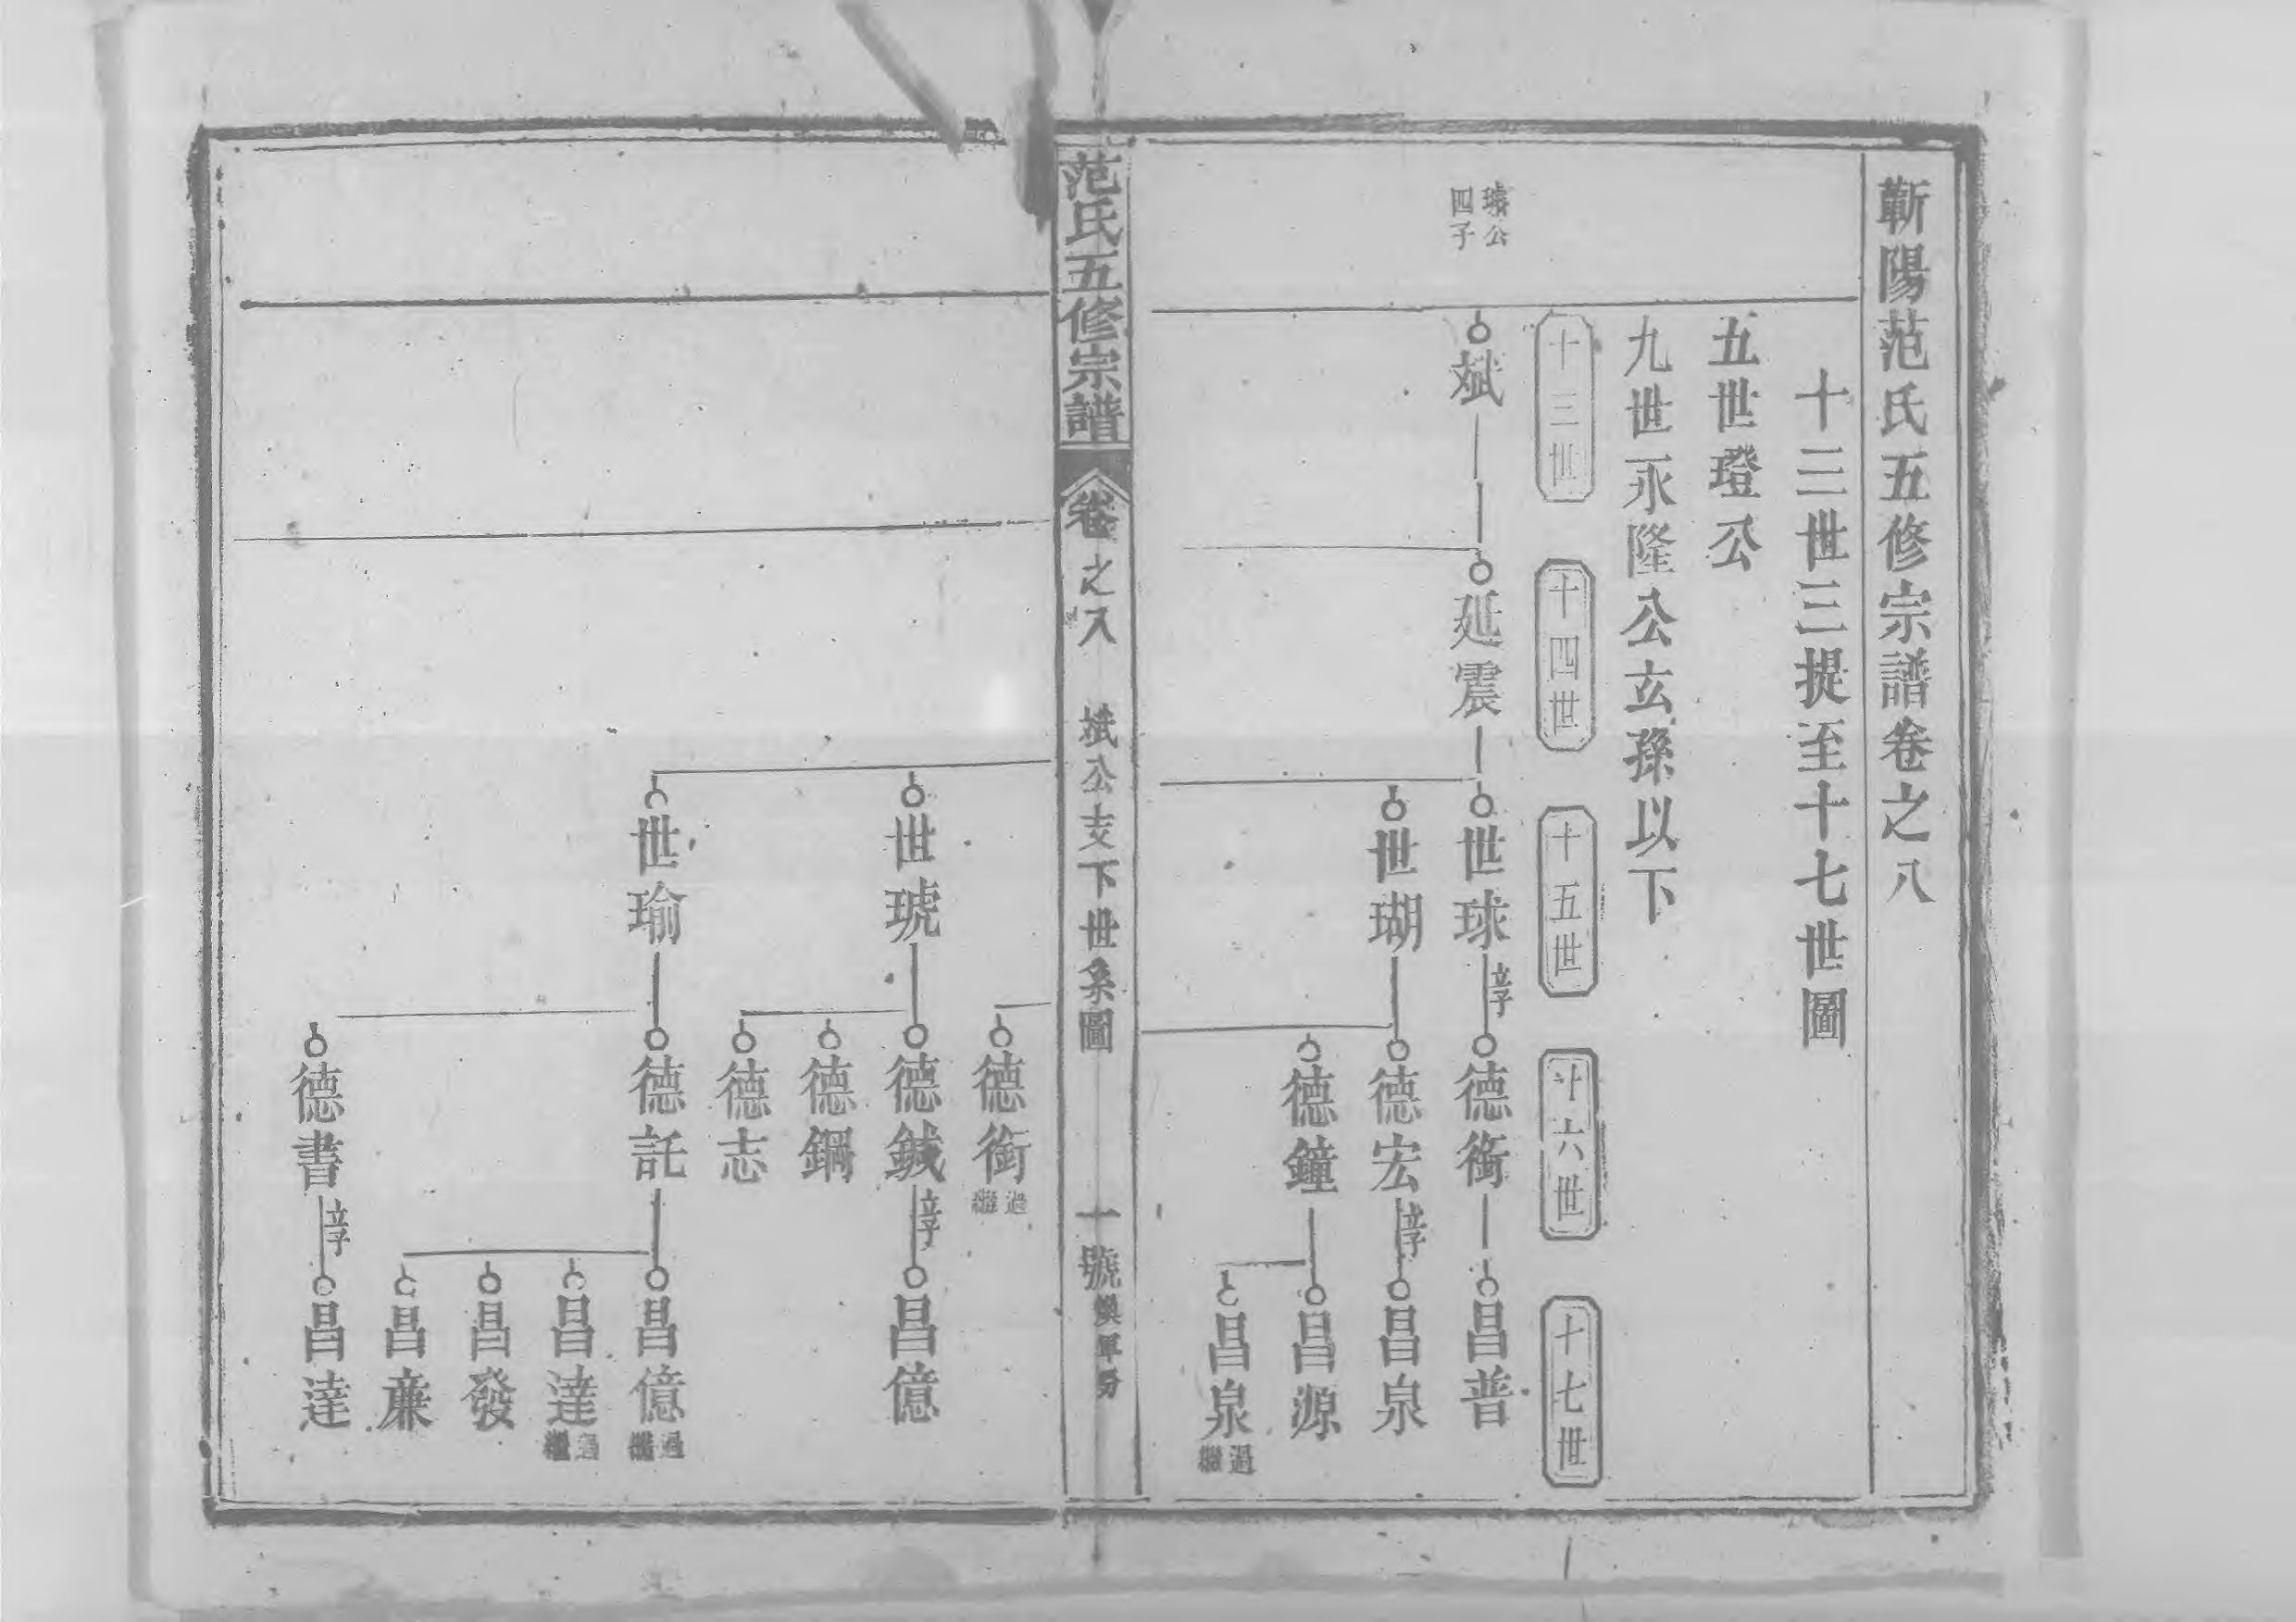 蘄陽范氏五修宗譜卷之八
十三世三提至十七世圖
五世璒公
九世永隆公玄孫以下
十三世
十四世
十五世
十六世
十七世
璘公
四子
斌
延震
世球
立子
德衡
昌普
世瑚
德宏
立子
昌泉
德鐘
昌源
昌泉
過繼
范氏五修宗譜
卷之八
斌公支下世系圖
一號
德衡
過繼
世琥
德鋮
立子
昌億
德鋼
德志
世瑜
德託
昌億
過繼
昌達
過繼
昌發
昌廉
德書
立子
昌達